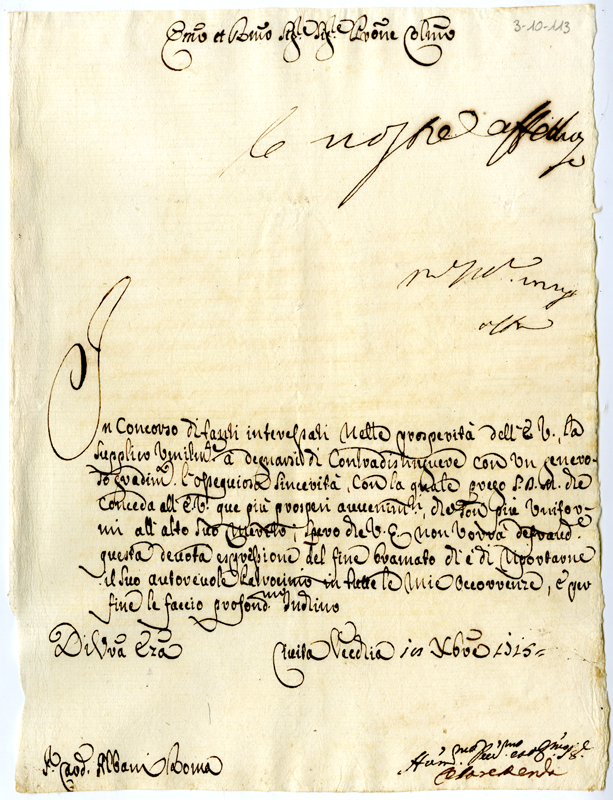 Em͞o et R͞mo Sig.r Sig.r P͞rone Col͞mo
3-10-113
le nostre
In Concorso di tanti interessati nelle prosperità dell'E V., la
supplico Umilm.te à degnarsi di Contradistinguere con un genero-
so gradim.to l'ossequiosa sincerità, con la quale prego S.D.M. che
Conceda all'E.V. que più prosperi auuenim.ti, che son più Unifor-
mi all'alto suo Merito; spero che V.E. non vorrà defraud.e
questa deuota espressione del fine bramato di è di riportarne
il suo autoreuole Patrocinio in tutte le mie occorrenze, è per
fine le faccio profond.mte Inchino
Di V͞ra E͞za
Ciuita Vecchia Xbre 1715
S.r Card. Albani Roma